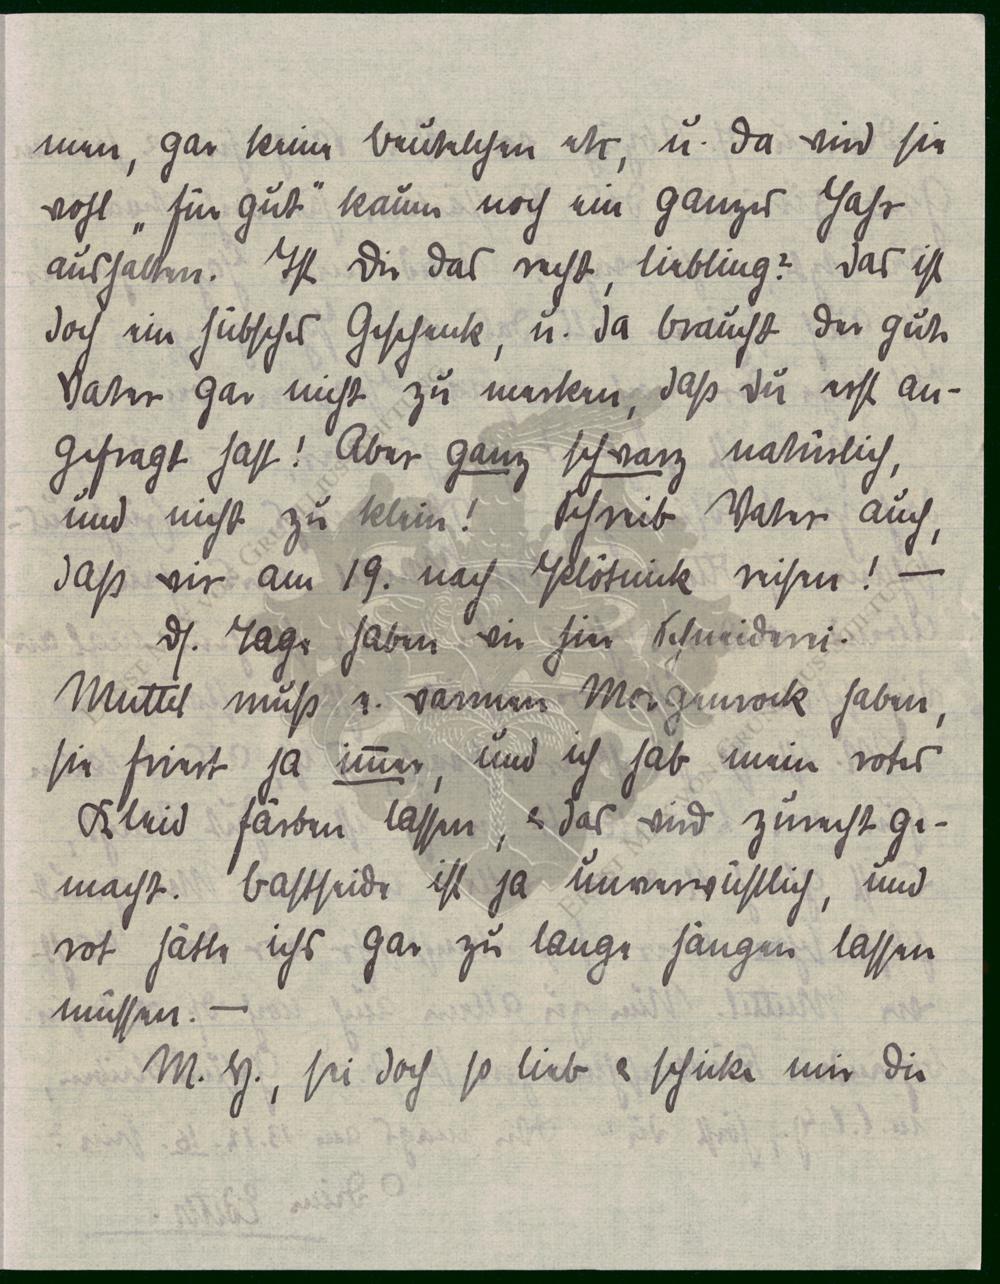 men, gar keine Beutelchen etc, u. da wird sie
wohl „für gut" kaum noch ein ganzes Jahr
aushalten. Ist Dir das recht, Liebling? Das ist
doch ein hübsches Geschenk, u. da braucht der gute
Vater gar nicht zu merken, daß Du erst an-
gefragt hast! Aber ganz schwarz natürlich,
und nicht zu klein! Schreib Vater auch,
daß wir am 19. nach reisen! —
ds. Tage haben wir hier Schneiderei.
Muttel muß e. warmen Morgenrock haben,
sie friert ja immer, und ich hab mein rotes
Kleid färben lassen, & das wird zurecht ge-
macht. Bastseide ist ja unverwüstlich, und
rot hätte ichs gar zu lange hängen lassen
müssen. —
M. H., sei doch so lieb & schicke mir die